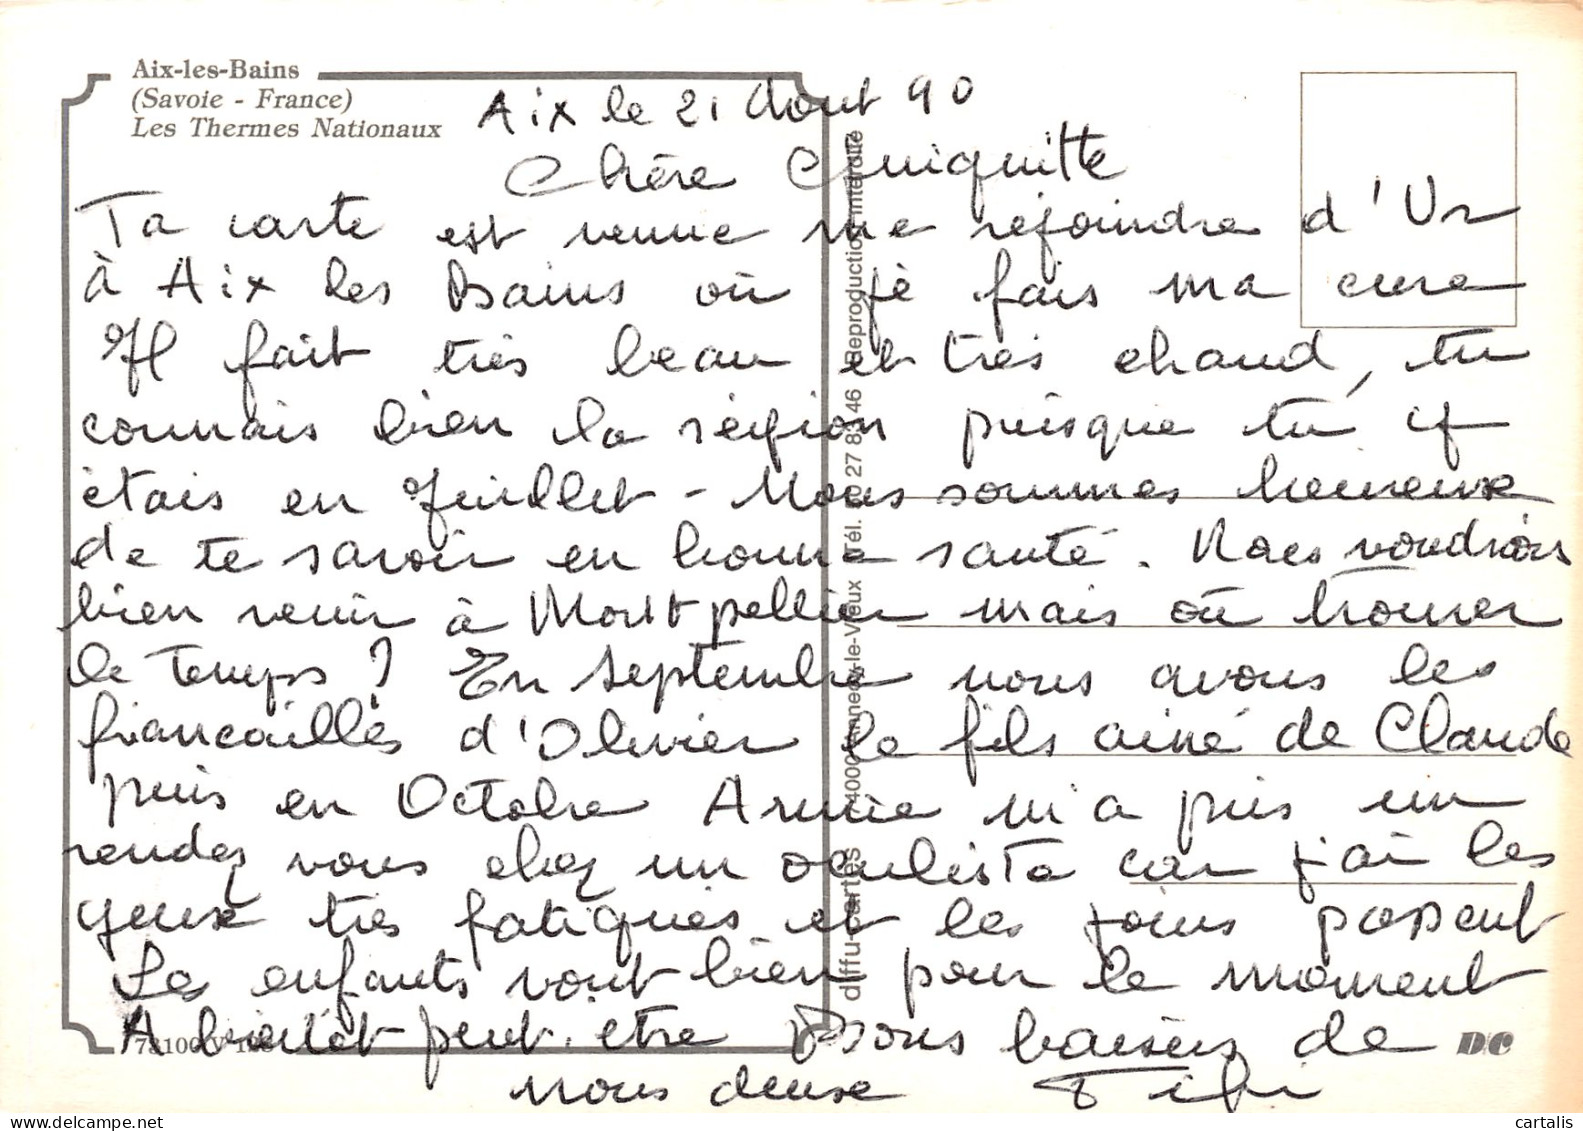 Aix-les-Bains
(Savoie - France)
Les Thermes Nationaux
Aix le 21 Aout 90
Chère Guiguitte
Ta carte est venue me rejoindre d'Ur
à Aix les Bains où je fais ma cure
Il fait très beau et très chaud, tu
connais bien la région puisque tu y
étais en Juillet - Nous sommes heureux
de te savoir en bonne santé. Nous voudrions
bien venir à Montpellier mais où trouver
le temps ? En Septembre nous avons les
fiancailles d'Olivier le fils ainé de Claude
puis en Octobre Annie m'a pris un
rendez vous chez un oculiste car j'ai les
yeux très fatigués et les jours passent
Les enfants vont bien pour le moment
A bientôt peut. etre Bons baisers de
nous deux Fifi
diffu-cartes 74000 Annecy-le-Vieux Tél. 50 27 8 46 Reproduction interdite
73100
DC
cartalis